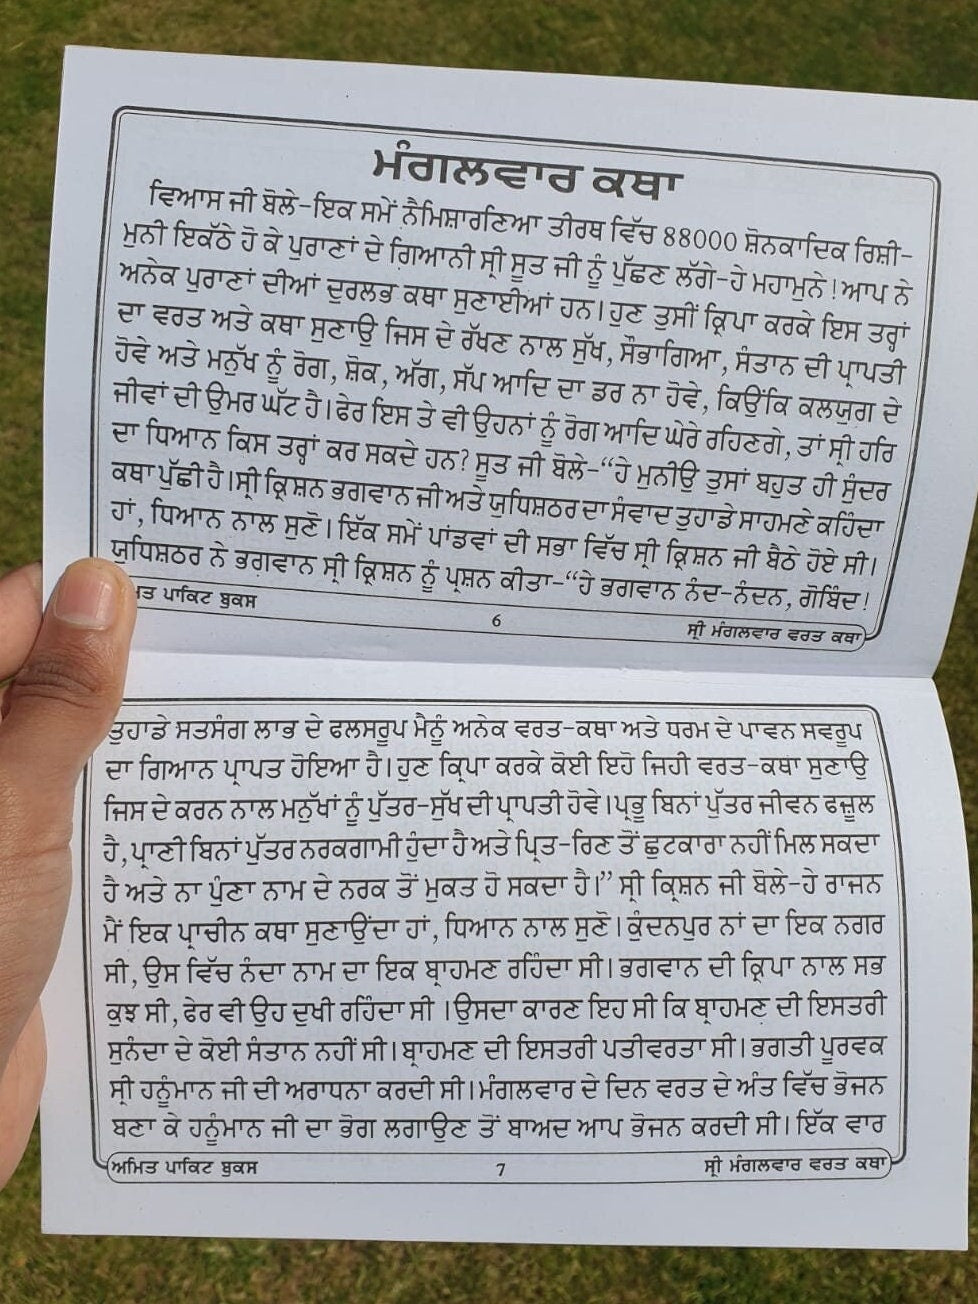 ਮੰਗਲਵਾਰ ਕਥਾ
ਵਿਆਸ ਜੀ ਬੋਲੇ-ਇਕ ਸਮੇਂ ਨੈਮਿਸ਼ਾਰਣਿਆ ਤੀਰਥ ਵਿੱਚ 88000 ਸ਼ੋਨਕਾਦਿਕ ਰਿਸ਼ੀ-
ਮੁਨੀ ਇਕੱਠੇ ਹੋ ਕੇ ਪੁਰਾਣਾਂ ਦੇ ਗਿਆਨੀ ਸ੍ਰੀ ਸੂਤ ਜੀ ਨੂੰ ਪੁੱਛਣ ਲੱਗੇ-ਹੇ ਮਹਾਮੁਨੇ! ਆਪ ਨੇ
ਅਨੇਕ ਪੁਰਾਣਾਂ ਦੀਆਂ ਦੁਰਲਭ ਕਥਾ ਸੁਣਾਈਆਂ ਹਨ। ਹੁਣ ਤੁਸੀਂ ਕ੍ਰਿਪਾ ਕਰਕੇ ਇਸ ਤਰ੍ਹਾਂ
ਦਾ ਵਰਤ ਅਤੇ ਕਥਾ ਸੁਣਾਉ ਜਿਸ ਦੇ ਰੱਖਣ ਨਾਲ ਸੁੱਖ, ਸੌਭਾਗਿਆ, ਸੰਤਾਨ ਦੀ ਪ੍ਰਾਪਤੀ
ਹੋਵੇ ਅਤੇ ਮਨੁੱਖ ਨੂੰ ਰੋਗ, ਸ਼ੋਕ, ਅੱਗ, ਸੱਪ ਆਦਿ ਦਾ ਡਰ ਨਾ ਹੋਵੇ, ਕਿਉਂਕਿ ਕਲਯੁਗ ਦੇ
ਜੀਵਾਂ ਦੀ ਉਮਰ ਘੱਟ ਹੈ। ਫੇਰ ਇਸ ਤੇ ਵੀ ਉਹਨਾਂ ਨੂੰ ਰੋਗ ਆਦਿ ਘੇਰੇ ਰਹਿਣਗੇ, ਤਾਂ ਸ੍ਰੀ ਹਰਿ
ਦਾ ਧਿਆਨ ਕਿਸ ਤਰ੍ਹਾਂ ਕਰ ਸਕਦੇ ਹਨ? ਸੂਤ ਜੀ ਬੋਲੇ-“ਹੇ ਮੁਨੀਉ ਤੁਸਾਂ ਬਹੁਤ ਹੀ ਸੁੰਦਰ
ਕਥਾ ਪੁੱਛੀ ਹੈ। ਸ੍ਰੀ ਕ੍ਰਿਸ਼ਨ ਭਗਵਾਨ ਜੀ ਅਤੇ ਯੁਧਿਸ਼ਠਰ ਦਾ ਸੰਵਾਦ ਤੁਹਾਡੇ ਸਾਹਮਣੇ ਕਹਿੰਦਾ
ਹਾਂ, ਧਿਆਨ ਨਾਲ ਸੁਣੋ। ਇੱਕ ਸਮੇਂ ਪਾਂਡਵਾਂ ਦੀ ਸਭਾ ਵਿੱਚ ਸ੍ਰੀ ਕ੍ਰਿਸ਼ਨ ਜੀ ਬੈਠੇ ਹੋਏ ਸੀ।
ਯੁਧਿਸ਼ਠਰ ਨੇ ਭਗਵਾਨ ਸ੍ਰੀ ਕ੍ਰਿਸ਼ਨ ਨੂੰ ਪ੍ਰਸ਼ਨ ਕੀਤਾ-“ਹੇ ਭਗਵਾਨ ਨੰਦ-ਨੰਦਨ, ਗੋਬਿੰਦ!
ਪਾਕਿਟ ਬੁਕਸ 6 ਸ੍ਰੀ ਮੰਗਲਵਾਰ ਵਰਤ ਕਥਾ
ਤੁਹਾਡੇ ਸਤਸੰਗ ਲਾਭ ਦੇ ਫਲਸਰੂਪ ਮੈਨੂੰ ਅਨੇਕ ਵਰਤ-ਕਥਾ ਅਤੇ ਧਰਮ ਦੇ ਪਾਵਨ ਸਵਰੂਪ
ਦਾ ਗਿਆਨ ਪ੍ਰਾਪਤ ਹੋਇਆ ਹੈ। ਹੁਣ ਕ੍ਰਿਪਾ ਕਰਕੇ ਕੋਈ ਇਹੋ ਜਿਹੀ ਵਰਤ-ਕਥਾ ਸੁਣਾਉ
ਜਿਸ ਦੇ ਕਰਨ ਨਾਲ ਮਨੁੱਖਾਂ ਨੂੰ ਪੁੱਤਰ-ਸੁੱਖ ਦੀ ਪ੍ਰਾਪਤੀ ਹੋਵੇ। ਪ੍ਰਭੂ ਬਿਨਾਂ ਪੁੱਤਰ ਜੀਵਨ ਫਜ਼ੂਲ
ਹੈ, ਪ੍ਰਾਣੀ ਬਿਨਾਂ ਪੁੱਤਰ ਨਰਕਗਾਮੀ ਹੁੰਦਾ ਹੈ ਅਤੇ ਪ੍ਰਿਤ-ਰਿਣ ਤੋਂ ਛੁਟਕਾਰਾ ਨਹੀਂ ਮਿਲ ਸਕਦਾ
ਹੈ ਅਤੇ ਨਾ ਪੁੰਣਾ ਨਾਮ ਦੇ ਨਰਕ ਤੋਂ ਮੁਕਤ ਹੋ ਸਕਦਾ ਹੈ।” ਸ੍ਰੀ ਕ੍ਰਿਸ਼ਨ ਜੀ ਬੋਲੇ-ਹੇ ਰਾਜਨ
ਮੈਂ ਇਕ ਪ੍ਰਾਚੀਨ ਕਥਾ ਸੁਣਾਉਂਦਾ ਹਾਂ, ਧਿਆਨ ਨਾਲ ਸੁਣੋ। ਕੁੰਦਨਪੁਰ ਨਾਂ ਦਾ ਇਕ ਨਗਰ
ਸੀ, ਉਸ ਵਿੱਚ ਨੰਦਾ ਨਾਮ ਦਾ ਇਕ ਬ੍ਰਾਹਮਣ ਰਹਿੰਦਾ ਸੀ। ਭਗਵਾਨ ਦੀ ਕ੍ਰਿਪਾ ਨਾਲ ਸਭ
ਕੁਝ ਸੀ, ਫੇਰ ਵੀ ਉਹ ਦੁਖੀ ਰਹਿੰਦਾ ਸੀ । ਉਸਦਾ ਕਾਰਣ ਇਹ ਸੀ ਕਿ ਬ੍ਰਾਹਮਣ ਦੀ ਇਸਤਰੀ
ਸੁਨੰਦਾ ਦੇ ਕੋਈ ਸੰਤਾਨ ਨਹੀਂ ਸੀ। ਬ੍ਰਾਹਮਣ ਦੀ ਇਸਤਰੀ ਪਤੀਵਰਤਾ ਸੀ। ਭਗਤੀ ਪੂਰਵਕ
ਸ੍ਰੀ ਹਨੂੰਮਾਨ ਜੀ ਦੀ ਅਰਾਧਨਾ ਕਰਦੀ ਸੀ। ਮੰਗਲਵਾਰ ਦੇ ਦਿਨ ਵਰਤ ਦੇ ਅੰਤ ਵਿੱਚ ਭੋਜਨ
ਬਣਾ ਕੇ ਹਨੂੰਮਾਨ ਜੀ ਦਾ ਭੋਗ ਲਗਾਉਣ ਤੋਂ ਬਾਅਦ ਆਪ ਭੋਜਨ ਕਰਦੀ ਸੀ। ਇੱਕ ਵਾਰ
ਅਮਿਤ ਪਾਕਿਟ ਬੁਕਸ 7 ਸ੍ਰੀ ਮੰਗਲਵਾਰ ਵਰਤ ਕਥਾ